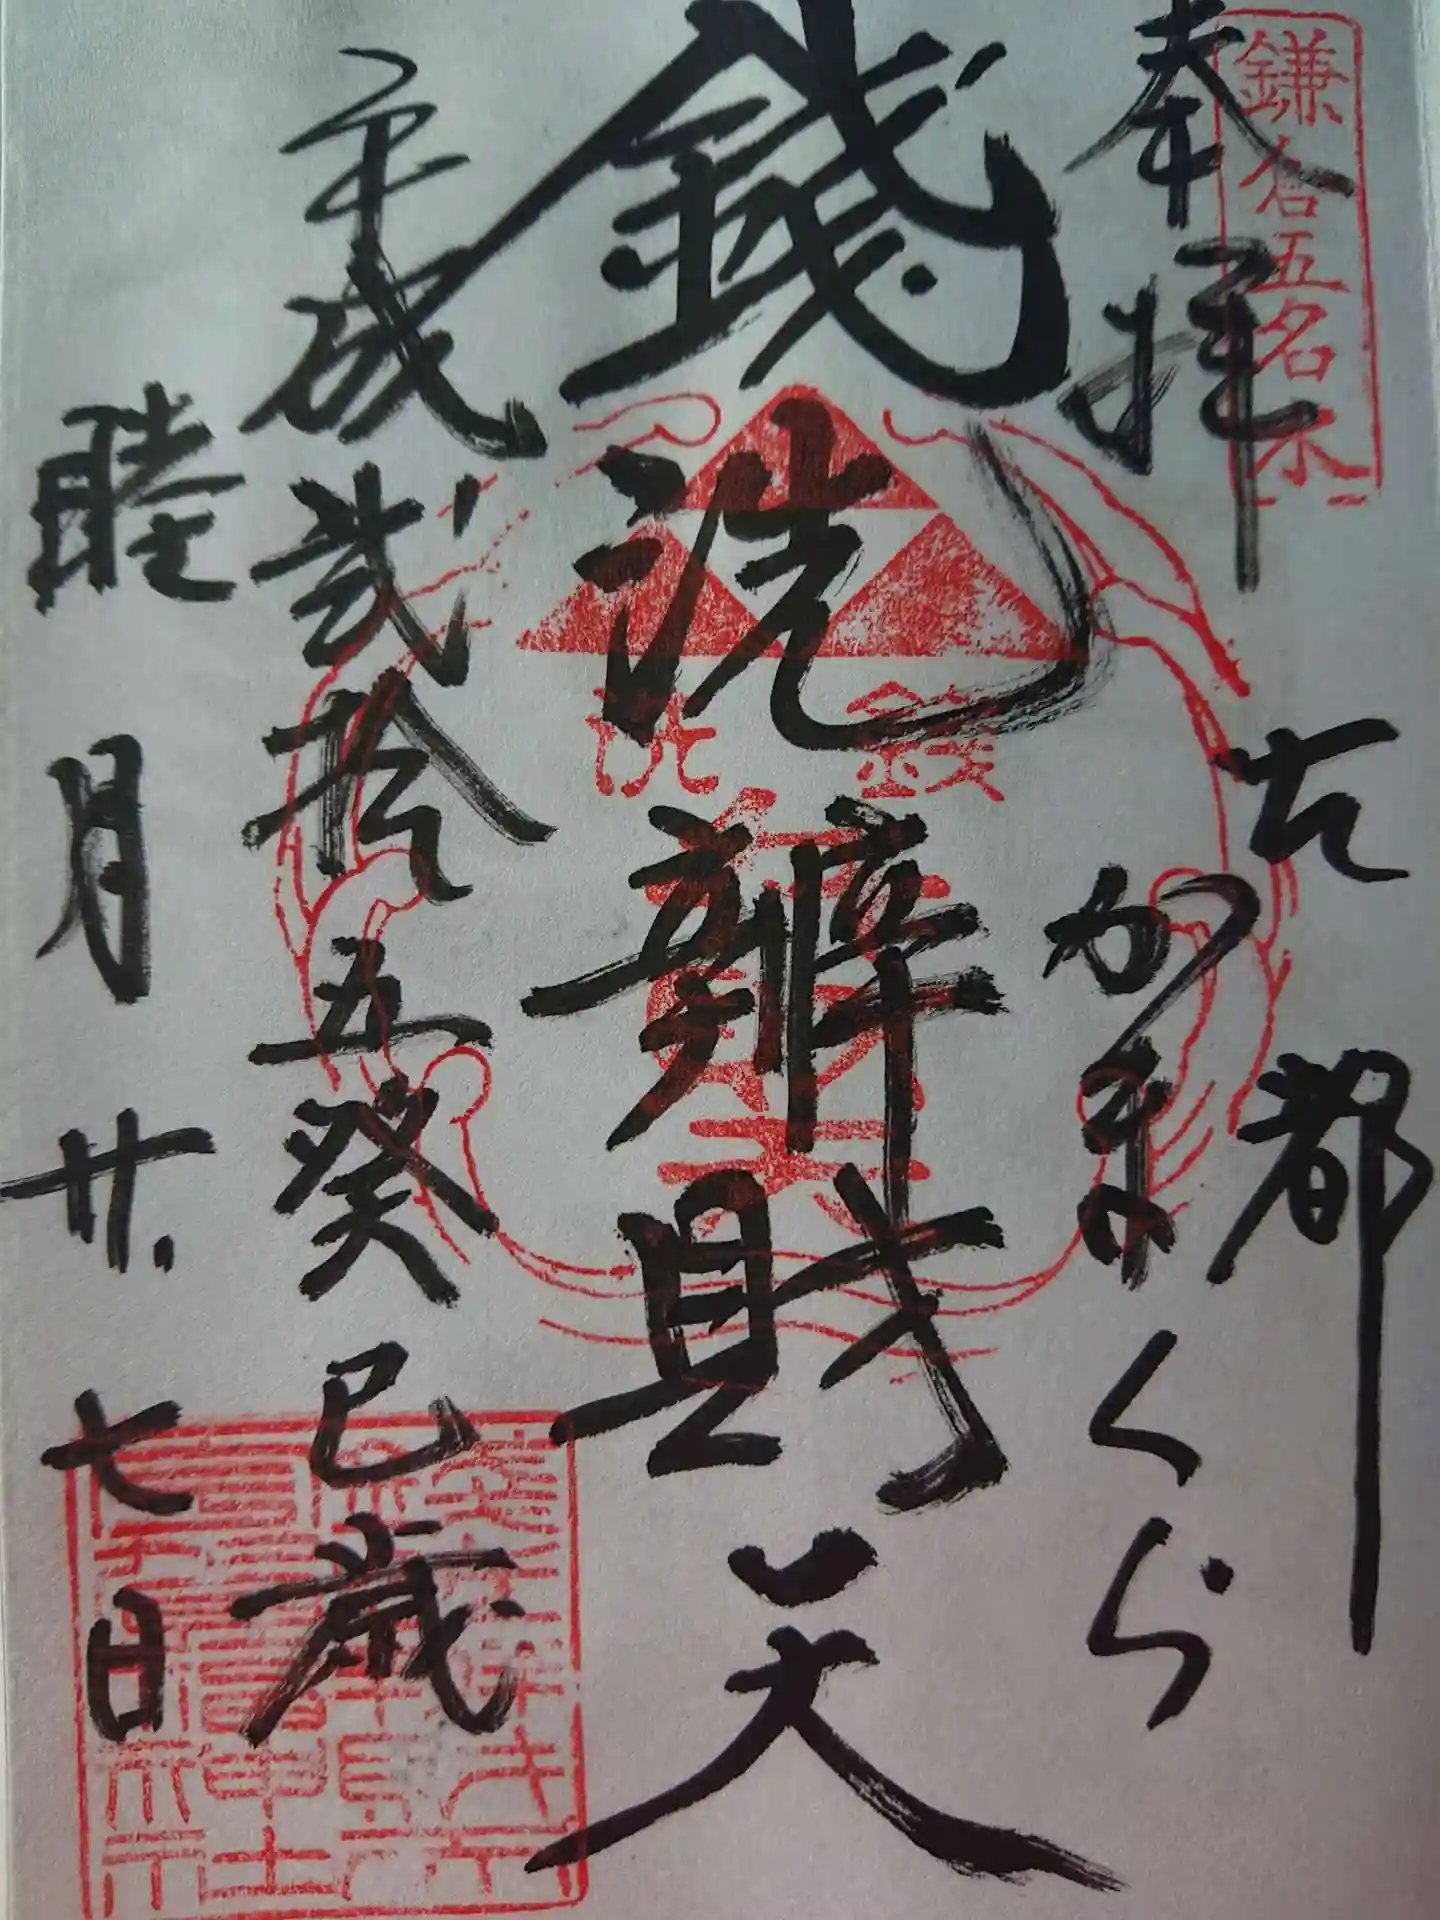 鎌倉五名水
奉拝
古都
かまくら
錢洗辨財天
錢洗
平成貳拾五癸巳歳
睦月廿七日